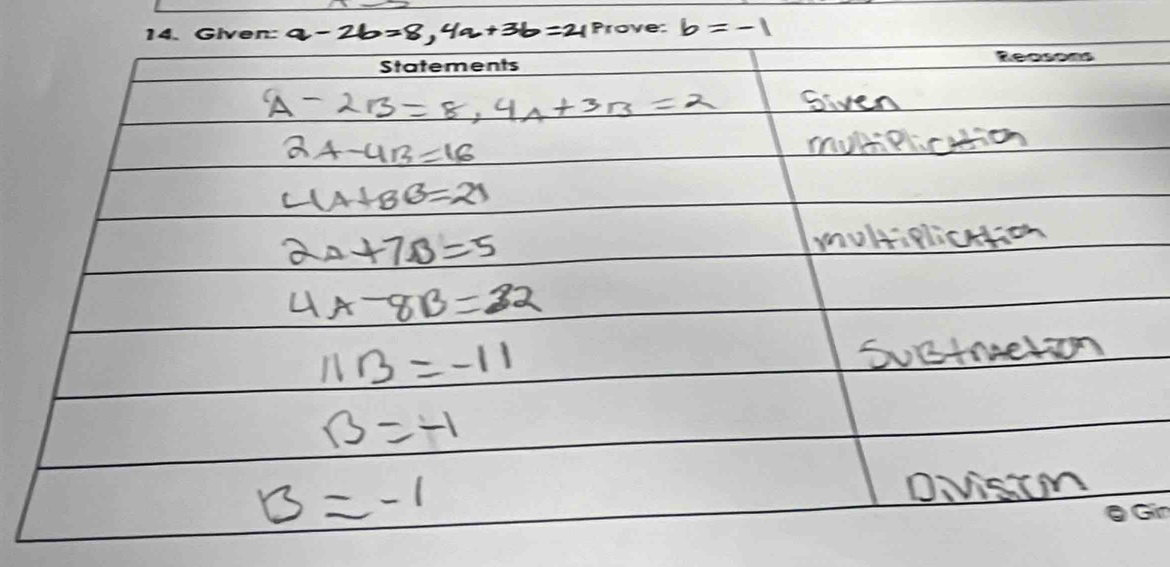 14. Given: a - 2b = 8, 4a + 3b = 21 Prove: b = -1
Statements Reasons
A - 2B = 8, 4A + 3B = 2 Given
2A - 4B = 16 multiplication
4A + 8B = 21
2A + 7B = 5 multiplication
4A - 8B = 32
11B = -11 Subtraction
B = -1
B = -1 Division
© Gin